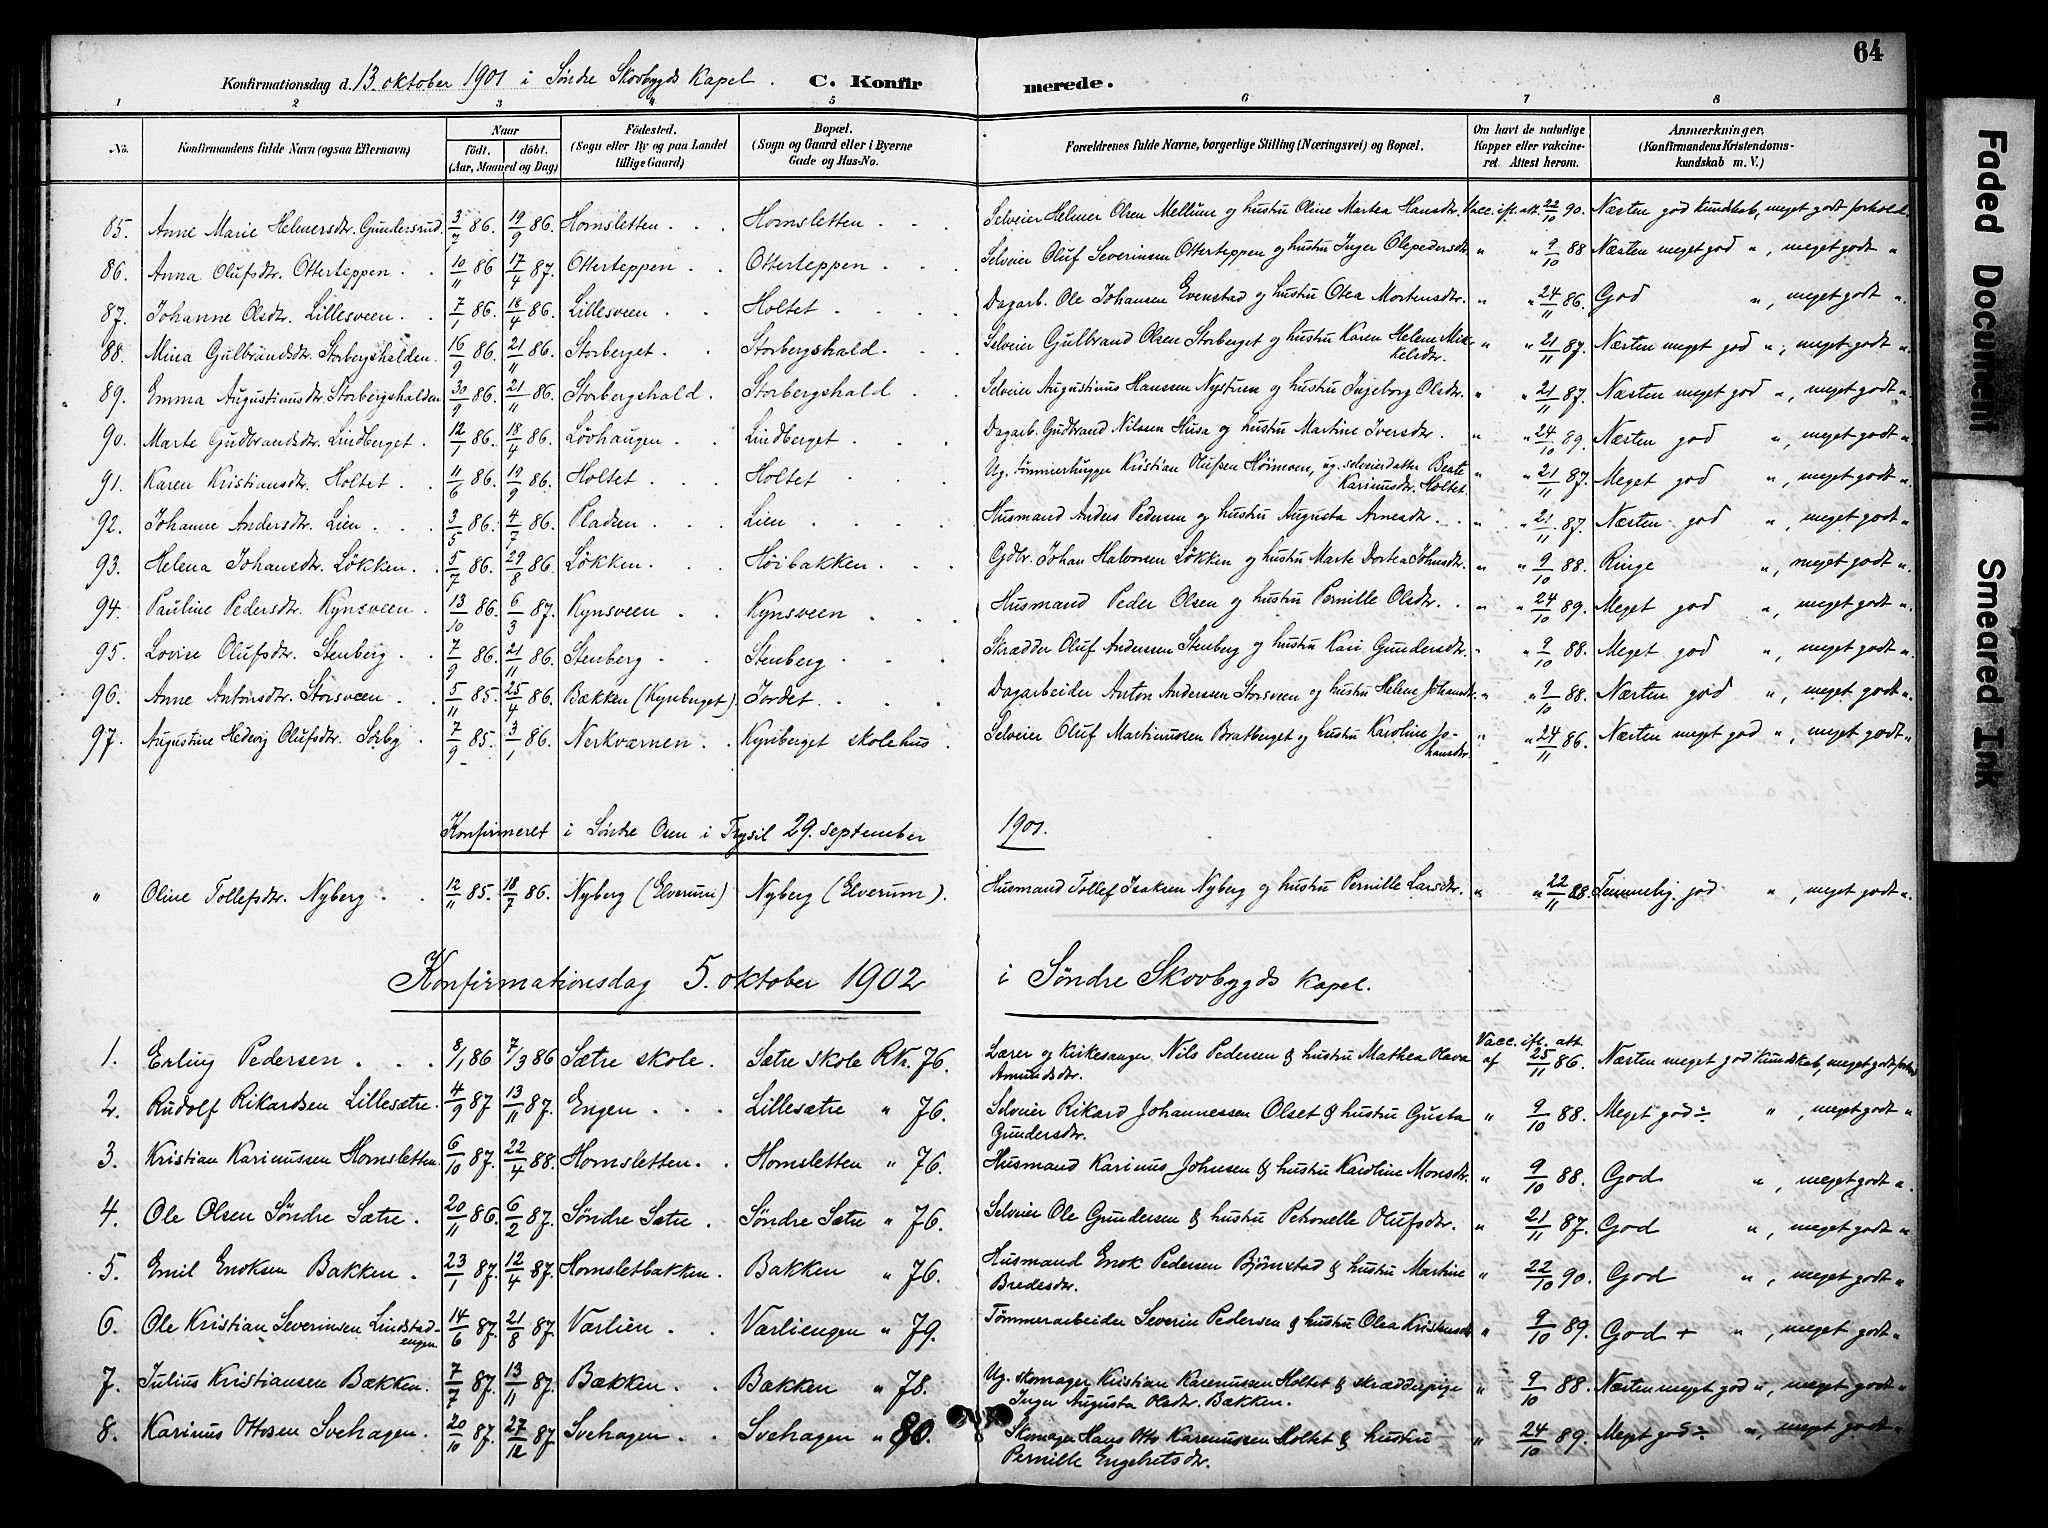 64
Konfirmationsdag d. 13. oktober 1901 i Søndre Skovbygds Kapel. C. Konfirmerede.
1 2 3 4 5 6 7 8
No. Konfirmandens fulde Navn (ogsaa Efternavn) Naar født. døbt. (Aar, Maaned og Dag) Fødested. (Sogn eller By og paa Landet tillige Gaard) Bopæl. (Sogn og Gaard eller i Byerne Gade og Hus-No. Forældrenes fulde Navne, borgerlige Stilling (Næringsvei) og Bopæl. Om havt de naturlige Kopper eller vakcineret. Attest herom. Anmærkninger. (Konfirmandens Kristendomskundskab m. V.)
85. Anne Marie Helmersdtr. Gundersrud. 3/7 86. 19/9 86. Homsletten . . Homsletten . . . Selveier Helmer Olsen Mellum og hustru Oline Martea Hansdtr. Vacc. ifl. att. 22/10 90. Næsten god kundskab, meget godt forhold.
86. Anna Olufsdtr. Otterteppen . . 10/11 86 17/4 87. Otterteppen . . Otterteppen . . . Selveier Oluf Severinsen Otterteppen og hustru Inger Olepedersdtr. " " 9/10 88 Næsten meget god ", meget godt "
87. Johanne Olsdtr. Lillesveen . . 7/1 86. 18/4 86. Lillesveen . . Holtet . . . . Dagarb. Ole Johansen Evenstad og hustru Otea Mortensdtr. " " 24/11 86. God ", meget godt ".
88. Mina Gulbrandsdtr. Storbergshalden. 16/9 86. 21/11 86. Storberget . . Storbergshald . . . Selveier Gulbrand Olsen Storberget og hustru Karen Helene Mikkelsdtr. " " 21/11 87. Næsten meget god ", meget godt ".
89. Emma Augustinusdtr. Storbergshalden 30/9 86. 21/11 86. Storbergshald . Storbergshald . . Selveier Augustinus Hanssen Nysturen og hustru Ingeborg Olsdtr. " " 21/11 87. Næsten meget god ", meget godt "
90. Marte Gudbrandsdtr. Lindberget . 12/1 86. 18/4 86. Løvhaugen . . Lindberget . . . Dagarb. Gudbrand Nilssen Husa og hustru Martine Iversdtr. . " " 24/10 89. Næsten god ", meget godt ".
91. Karen Kristiansdtr. Holtet . . 11/6 86. 19/9 86. Holtet . . Holtet . . . Ug. tømmerhugger Kristian Olufsen Høimoen, ug. selveierdatter Beate Karinusdtr. Holtet. " " 21/11 87. Meget god ", meget godt ".
92. Johanne Andersdtr. Lien . . . 3/5 86. 4/7 86. Pladsen . . . Lien . . . . Husmand Anders Pedersen og hustru Augusta Arnesdtr. . . " " 21/11 87. Næsten god ", meget godt "
93. Helena Johansdtr. Løkken . . 5/7 86. 29/8 86. Løkken . . . Høibakken . . . Gdbr. Johan Halvorsen Løkken og hustru Marte Dortea Johnsdtr. " " 9/10 88. Ringe ", meget godt ".
94. Pauline Pedersdtr. Kynsveen . 13/10 86. 6/3 87. Kynsveen . . Kynsveen . . . Husmand Peder Olsen og hustru Pernille Olsdtr. . " " 24/10 89. Meget god ", meget godt ".
95. Lovise Olufsdtr. Stenberg . . 7/9 86. 21/11 86. Stenberg . . Stenberg . . . Skrædder Oluf Anderssen Stenberg og hustru Kari Gundersdtr. " " 9/10 88. Meget god ", meget godt ".
96. Anne Antonsdtr. Storsveen . . 5/11 85. 25/4 86. Bækken (Kynberget). Jordet . . . Dagarbeider Anton Anderssen Storsveen og hustru Helene Johansdtr. " " 9/10 88. Næsten god ", meget godt "
97. Augustine Hedevig Olufsdtr. Sørby . 7/9 85. 3/1 86. Nerkværnen . . Kynberget skolehus . . Selveier Oluf Martinussen Bratberget og hustru Karoline Johansdtr. " " 24/11 86. Næsten meget god ", meget godt "
Konfirmeret i Søndre Osen i Trysil 29. september 1901.
" Oline Tollefsdtr. Nyberg . . 12/11 85. 18/7 86. Nyberg (Elverum) Nyberg (Elverum). Husmand Tollef Isaksen Nyberg og hustru Pernille Larsdtr. " " 22/11 88. Temmelig god ", meget godt ".
Konfirmationsdag 5. oktober 1902 i Søndre Skovbygds Kapel.
1. Erling Pedersen . . . 8/1 86 7/3 86 Sætre skole. Sætre skole RK. 76. Lærer og kirkesanger Nils Pedersen & hustru Mathea Olava Amundsdtr. Vacc. ifl. att. af 25/11 86. Næsten meget god kundskab, meget godt forhold
2. Rudolf Rikardsen Lillesætre. 4/9 87 13/11 87. Engen . . . Lillesætre " 76. Selveier Rikard Johannessen Olset & hustru Gusta Gundersdtr. " 9/10 88. Meget god ÷ ", meget godt "
3. Kristian Karinussen Homsletten. 6/10 87. 22/4 88. Homsletten. . Homsletten " 76. Husmand Karinus Johnsen & hustru Karoline Monsdtr. " 9/10 88. God ", meget godt ".
4. Ole Olsen Søndre Sætre. 20/11 86. 6/2 87. Søndre Sætre . Søndre Sætre " 76. Selveier Ole Gundersen & hustru Petronelle Olufsdtr. " 21/11 87. God ", meget godt "
5. Emil Enoksen Bakken . 23/1 87. 12/4 87. Homsletbakken. Bakken " 76. Husmand Enok Pedersen Bjørnstad & hustru Martine Bredesdtr. " 22/10 90. God ", meget godt "
6. Ole Kristian Severinsen Lindstadengen. 14/6 87. 21/8 87. Værlien . . Værliengen " 79. Tømmerarbeider Severin Pedersen & hustru Olea Kristensdtr. " 9/10 89. God + ", meget godt "
7. Julius Kristiansen Bækken. 7/7 87. 13/11 87. Bækken . . Bækken " 78. Ug. skomager Kristian Karenussen Holtet & skrædderpige Inger Augusta Olsdtr. Bækken. " 9/10 88. Næsten meget god ", meget godt "
8. Karinus Ottosen Svehagen. 20/10 87. 27/12 87 Svehagen . . Svehagen " 80. Skomager Hans Otto Karenussen Holtet & hustru Pernille Engebretsdtr. " 24/10 89. Meget god ÷ ", meget godt "
Faded Document
Smeared Ink